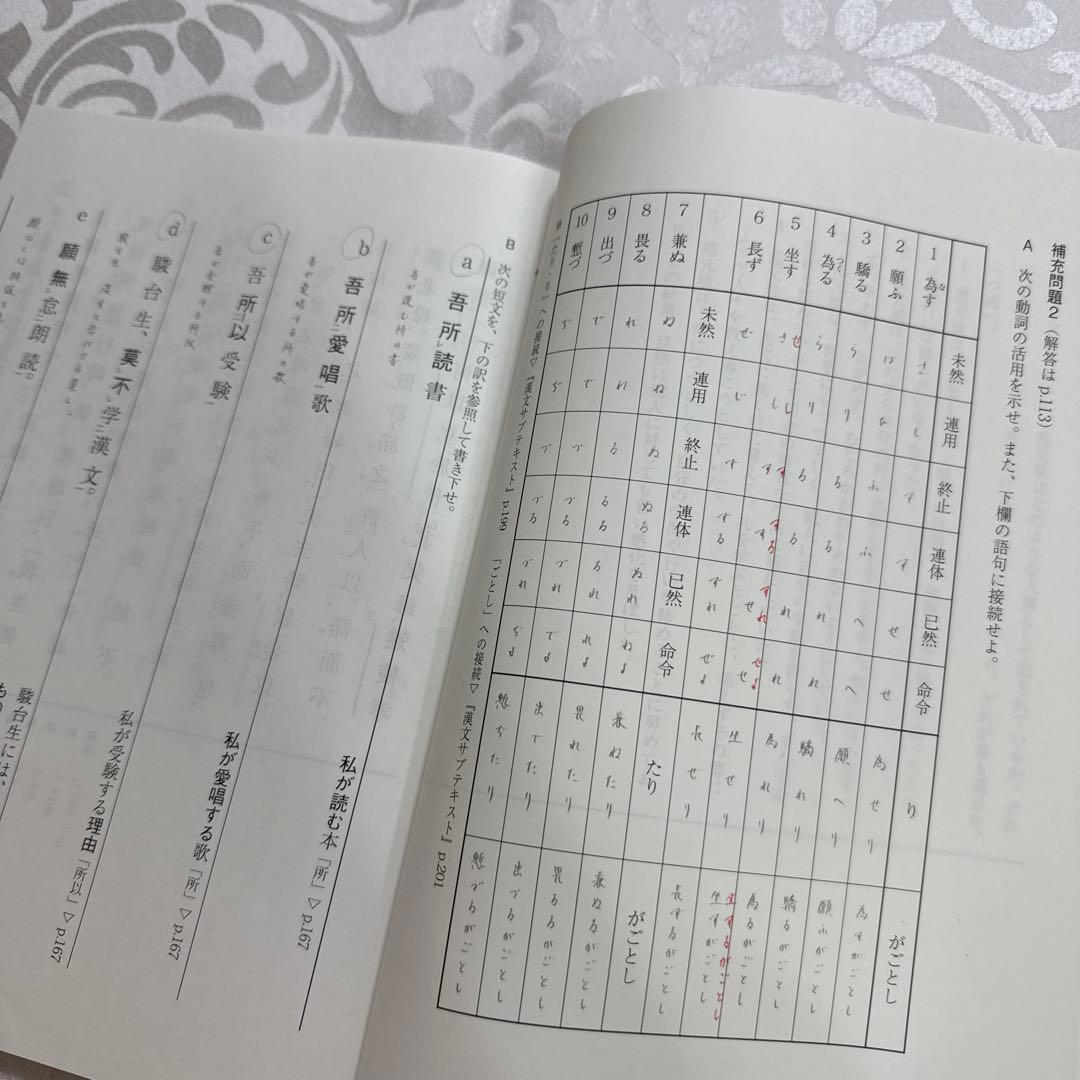 補充問題2(解答はp.113)
A 次の動詞の活用を示せ。また、下欄の語句に接続せよ。
未然 連用 終止 連体 已然 命令 り がごとし
1 為す な さ し す す せ せ 為せり 為すがごとし
2 願ふ は ひ ふ ふ へ へ 願へり 願ふがごとし
3 驕る ら り る る れ れ 驕れり 驕るがごとし
4 為る つく ら り る る れ れ 為れり 為るがごとし
5 坐す さ し す す せ せ 坐せり 坐すがごとし
せ し す する すれ せよ 坐するがごとし
6 長ず ぜ じ ず ずる ずれ ぜよ 長ぜり 長ずるがごとし
未然 連用 終止 連体 已然 命令 たり がごとし
7 兼ぬ ね ね ぬ ぬる ぬれ ねよ 兼ねたり 兼ぬるがごとし
8 畏る れ れ る るる るれ れよ 畏れたり 畏るるがごとし
9 出づ で で づ づる づれ でよ 出でたり 出づるがごとし
10 慙づ ぢ ぢ づ づる づれ ぢよ 慙ぢたり 慙づるがごとし
「たり・り」への接続▽『漢文サブテキスト』p.199 「ごとし」への接続▽『漢文サブテキスト』p.201
B 次の短文を、下の訳を参照して書き下せ。
a 吾所レ読書 私が読む本「所」▽p.167
吾が読む所の書
b 吾所二愛唱一歌 私が愛唱する歌「所」▽p.167
吾が愛唱する所の歌
c 吾所二以受験一 私が受験する理由「所以」▽p.167
吾が受験する所以
d 駿台生、莫レ不レ学二漢文一。 駿台生には、
e 願無レ怠二朗読一。